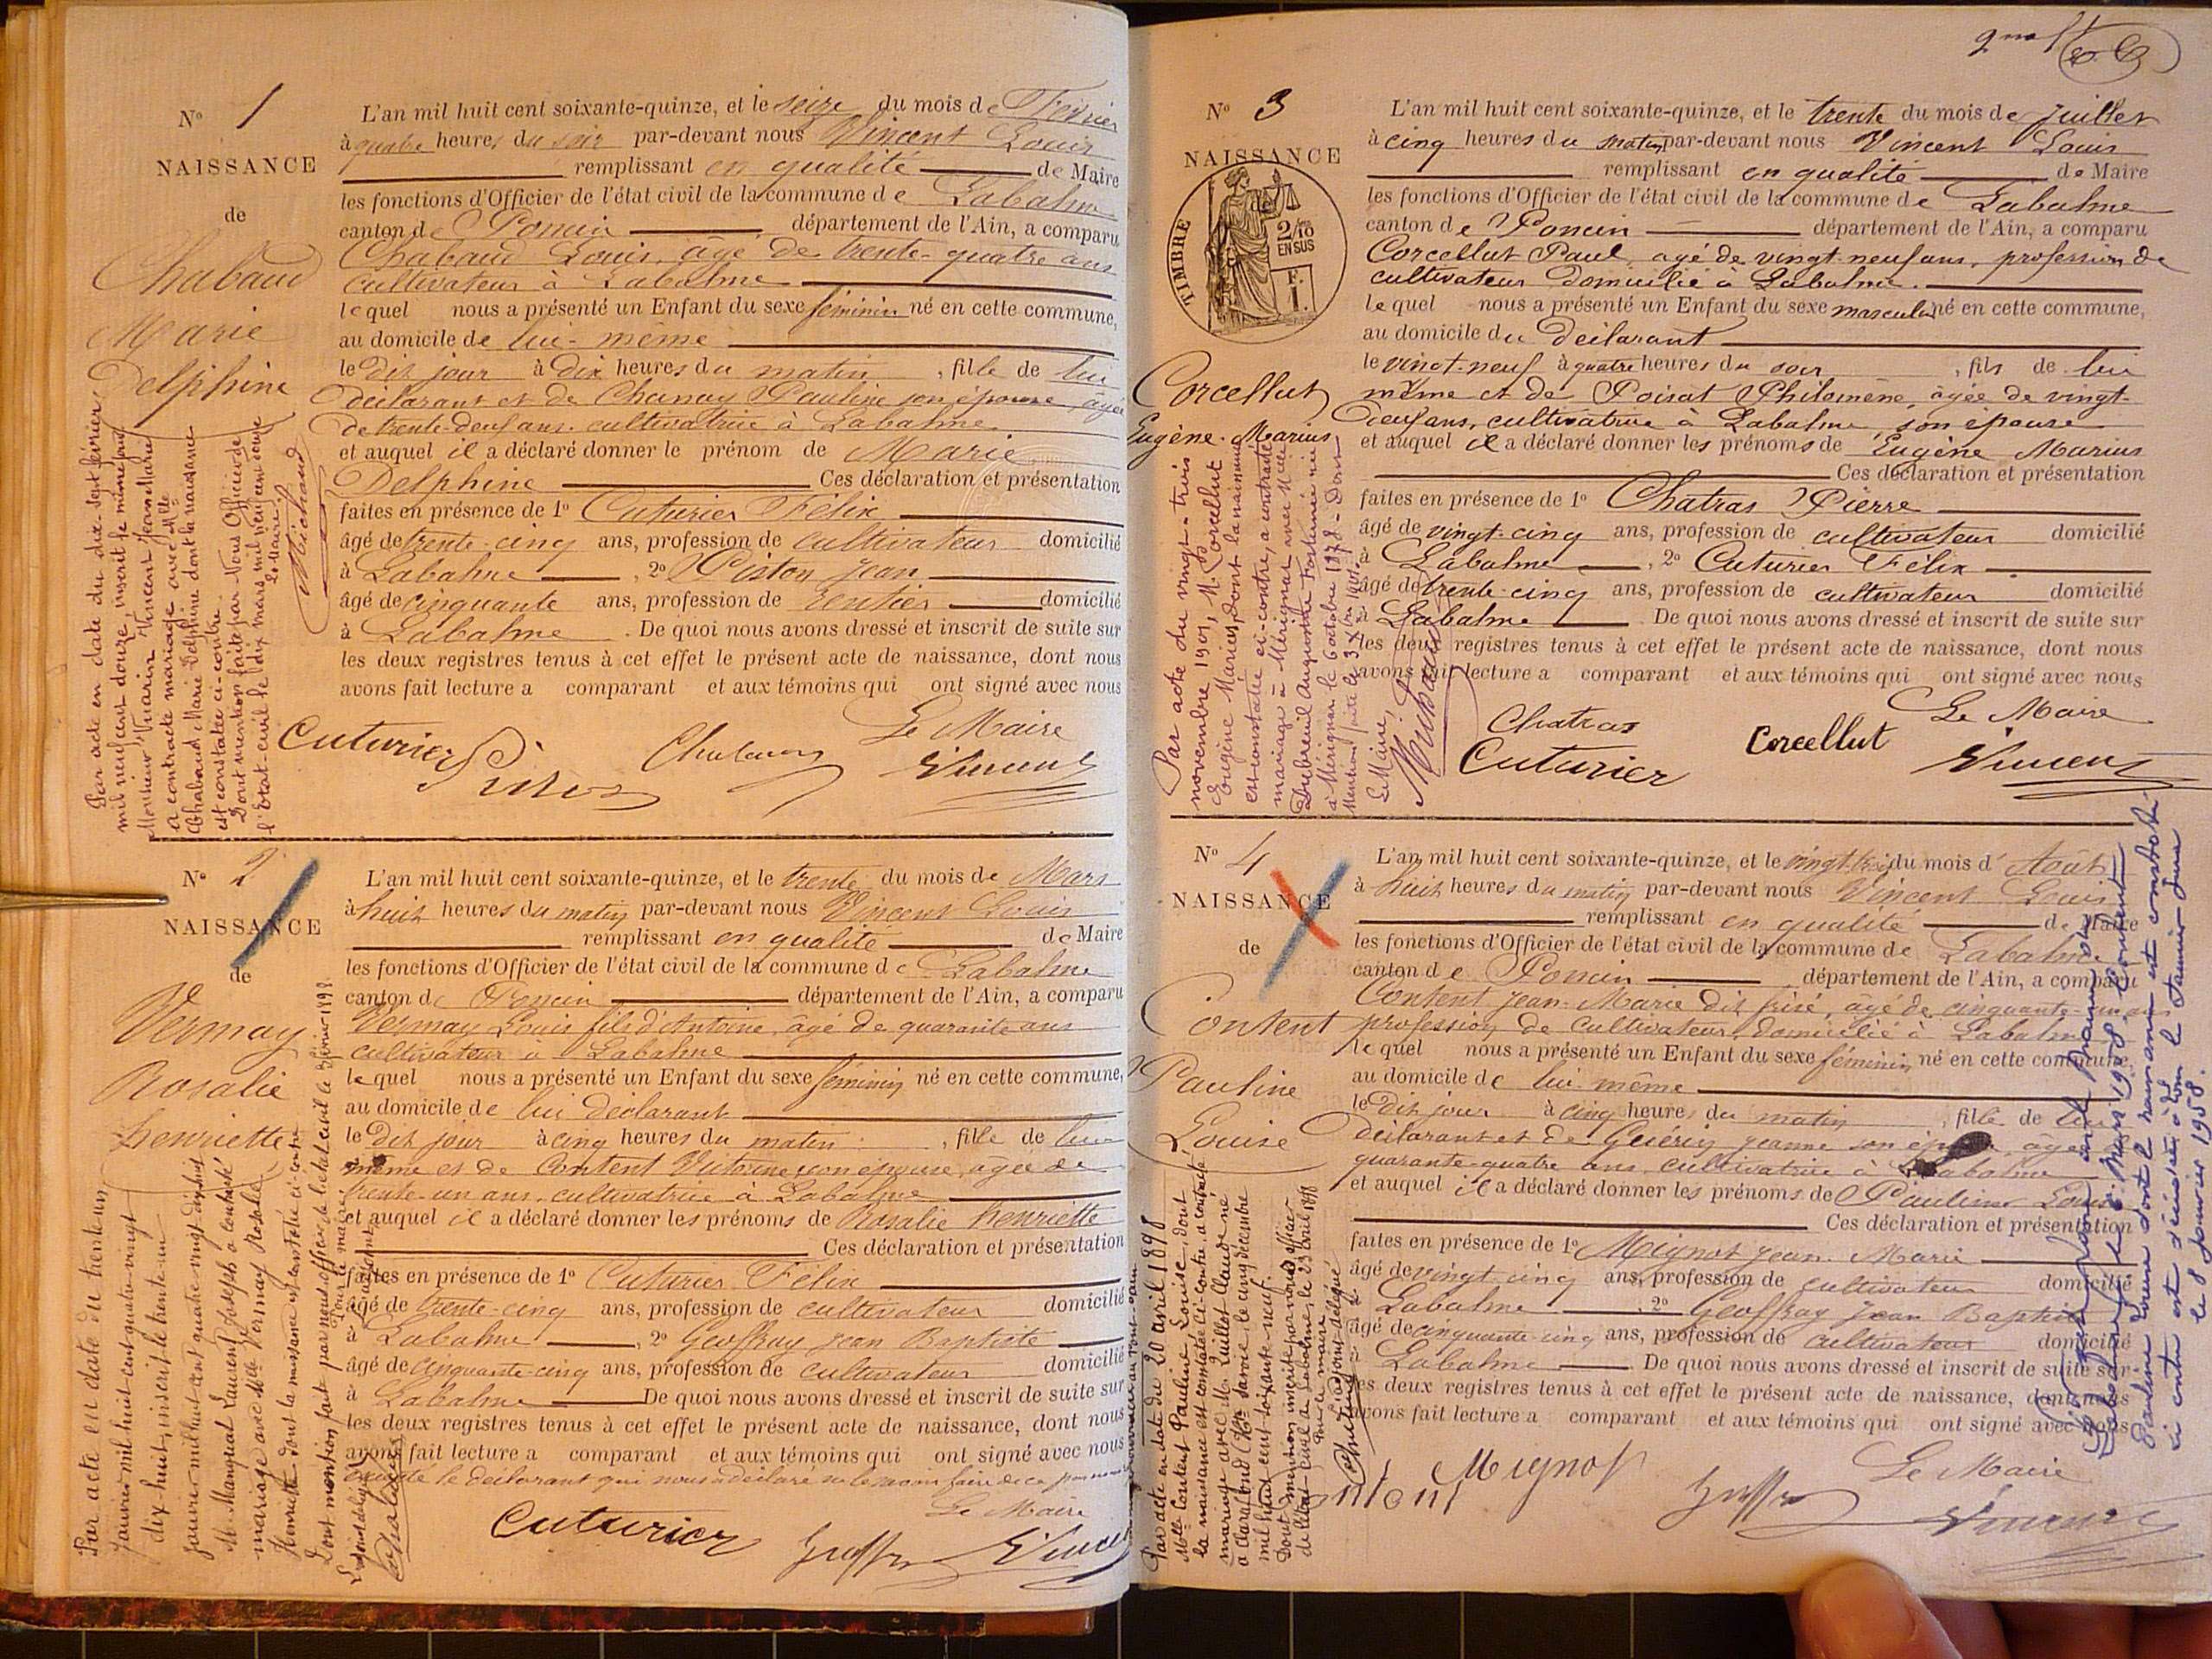 N° 1
NAISSANCE
de
Chabaud
Marie
Delphine
L'an mil huit cent soixante-quinze, et le seize du mois de Février
à quatre heures du soir par-devant nous Vincent Louis
remplissant en qualité de Maire
les fonctions d'Officier de l'état civil de la commune de Labalme
canton de Poncin département de l'Ain, a comparu
Chabaud Louis, âgé de trente-quatre ans
cultivateur à Labalme
lequel nous a présenté un Enfant du sexe féminin né en cette commune,
au domicile de lui-même
le dit jour à dix heures du matin, fille de lui
déclarant et de Chanay Pauline son épouse, âgée
de trente-deux ans, cultivatrice à Labalme
et auquel il a déclaré donner le prénom de Marie
Delphine Ces déclaration et présentation
faites en présence de 1° Cuturier Félix
âgé de trente-cinq ans, profession de cultivateur domicilié
à Labalme, 2° Piston Jean
âgé de cinquante ans, profession de rentier domicilié
à Labalme. De quoi nous avons dressé et inscrit de suite sur
les deux registres tenus à cet effet le présent acte de naissance, dont nous
avons fait lecture a comparant et aux témoins qui ont signé avec nous
Le Maire
Cuturier
Vincent
Par acte en date du dix-sept février
mil neuf cent douze, inscrit le même jour
Monsieur Vuarin Vincent Jean Marie
a contracté mariage avec Mlle
Chabaud Marie Delphine dont la naissance
est constatée ci-contre.
Dont mention faite par Nous Officier de
l'Etat-civil le dix mars mil neuf cent douze
Le Maire,
Michaud
N° 2
NAISSANCE
de
Vernay
Rosalie
henriette
L'an mil huit cent soixante-quinze, et le trente du mois de Mars
à huit heures du matin par-devant nous Vincent Louis
remplissant en qualité de Maire
les fonctions d'Officier de l'état civil de la commune de Labalme
canton de Poncin département de l'Ain, a comparu
Vernay Louis fils d'Antoine, âgé de quarante ans
cultivateur à Labalme
lequel nous a présenté un Enfant du sexe féminin né en cette commune,
au domicile de lui déclarant
le dit jour à cinq heures du matin, fille de lui
même et de Content Victorine son épouse, âgée de
trente-un ans, cultivatrice à Labalme
et auquel il a déclaré donner les prénoms de Rosalie henriette
Ces déclaration et présentation
faites en présence de 1° Cuturier Félix
âgé de trente-cinq ans, profession de cultivateur domicilié
à Labalme, 2° Geoffray Jean Baptiste
âgé de cinquante-cinq ans, profession de cultivateur domicilié
à Labalme De quoi nous avons dressé et inscrit de suite sur
les deux registres tenus à cet effet le présent acte de naissance, dont nous
avons fait lecture a comparant et aux témoins qui ont signé avec nous
excepté le déclarant qui nous a déclaré ne le savoir faire de ce
Le Maire
Cuturier
Vincent
Par acte en date du trente un
janvier mil huit cent quatre-vingt
dix huit, inscrit le trente-un
janvier mil huit cent quatre vingt dix huit
M. Manguat Laurent Joseph a contracté
mariage avec Mlle Vernay Rosalie
Henriette dont la naissance est constatée ci-contre
Dont mention faite par nous officier de l'état civil le février 1898.
Pour le maire
L'adjoint délégué
N° 3
NAISSANCE
TIMBRE
2/10
EN SUS
F.
1.
Corcellut
Eugène Marius
L'an mil huit cent soixante-quinze, et le trente du mois de Juillet
à cinq heures du matin par-devant nous Vincent Louis
remplissant en qualité de Maire
les fonctions d'Officier de l'état civil de la commune de Labalme
canton de Poncin département de l'Ain, a comparu
Corcellut Paul, agé de vingt-neuf ans, profession de
cultivateur domicilié à Labalme.
lequel nous a présenté un Enfant du sexe masculin né en cette commune,
au domicile du déclarant
le vingt-neuf à quatre heures du soir, fils de lui
même et de Poisat Philomène, âgée de vingt-
deuf ans, cultivatrice à Labalme, son épouse
et auquel il a déclaré donner les prénoms de Eugène Marius
Ces déclaration et présentation
faites en présence de 1° Chatras Pierre
âgé de vingt-cinq ans, profession de cultivateur domicilié
à Labalme, 2° Cuturier Félix
âgé de trente-cinq ans, profession de cultivateur domicilié
à Labalme. De quoi nous avons dressé et inscrit de suite sur
les deux registres tenus à cet effet le présent acte de naissance, dont nous
avons fait lecture a comparant et aux témoins qui ont signé avec nous
Le Maire
Chatras
Corcellut
Cuturier
Vincent
Par acte du vingt-trois
novembre 1901, M. Corcellut
Eugène Marius, dont la naissance
est constatée ci-contre, a contracté
mariage à Mérignat avec Mlle
Dubreuil Augustine Fortunée née
à Mérignat le 6 octobre 1878. Dont
Mention faite le 3 Xbre 1901.
Le Maire,
Michaud
N° 4
NAISSANCE
de
Content
Pauline
Louise
L'an mil huit cent soixante-quinze, et le vingt-trois du mois d' Août
à huit heures du matin par-devant nous Vincent Louis
remplissant en qualité de Maire
les fonctions d'Officier de l'état civil de la commune de Labalme
canton de Poncin département de l'Ain, a comparu
Content Jean-Marie dit frisé, âgé de cinquante-un ans
profession de cultivateur, domicilié à Labalme
lequel nous a présenté un Enfant du sexe féminin né en cette commune,
au domicile de lui-même
le dit jour à cinq heures du matin, fille de lui
déclarant et de Guérin Jeanne son épouse, âgée
quarante-quatre ans, cultivatrice à Labalme
et auquel il a déclaré donner les prénoms de Pauline Louise
Ces déclaration et présentation
faites en présence de 1° Mignot Jean-Marie
âgé de vingt-cinq ans, profession de cultivateur domicilié
à Labalme, 2° Geoffray Jean Baptiste
âgé de cinquante-cinq ans, profession de cultivateur domicilié
à Labalme. De quoi nous avons dressé et inscrit de suite sur
les deux registres tenus à cet effet le présent acte de naissance, dont nous
avons fait lecture a comparant et aux témoins qui ont signé avec nous
Le Maire
Content
Mignot
Vincent
Par acte en date du 20 avril 1898
Mlle Content Pauline Louise, dont
la naissance est constatée ci-contre, a contracté
mariage avec M. Quillet Claude né
à Clarafond (Hte Savoie) le cinq décembre
mil huit cent soixante-neuf.
Dont mention inscrite par nous officier
de l'état-civil de Labalme, le 23 avril 1898
Pour le maire
L'adjoint délégué
Pauline Louise dont la naissance est constatée
ci contre est décédée à
le 8 janvier 1958.